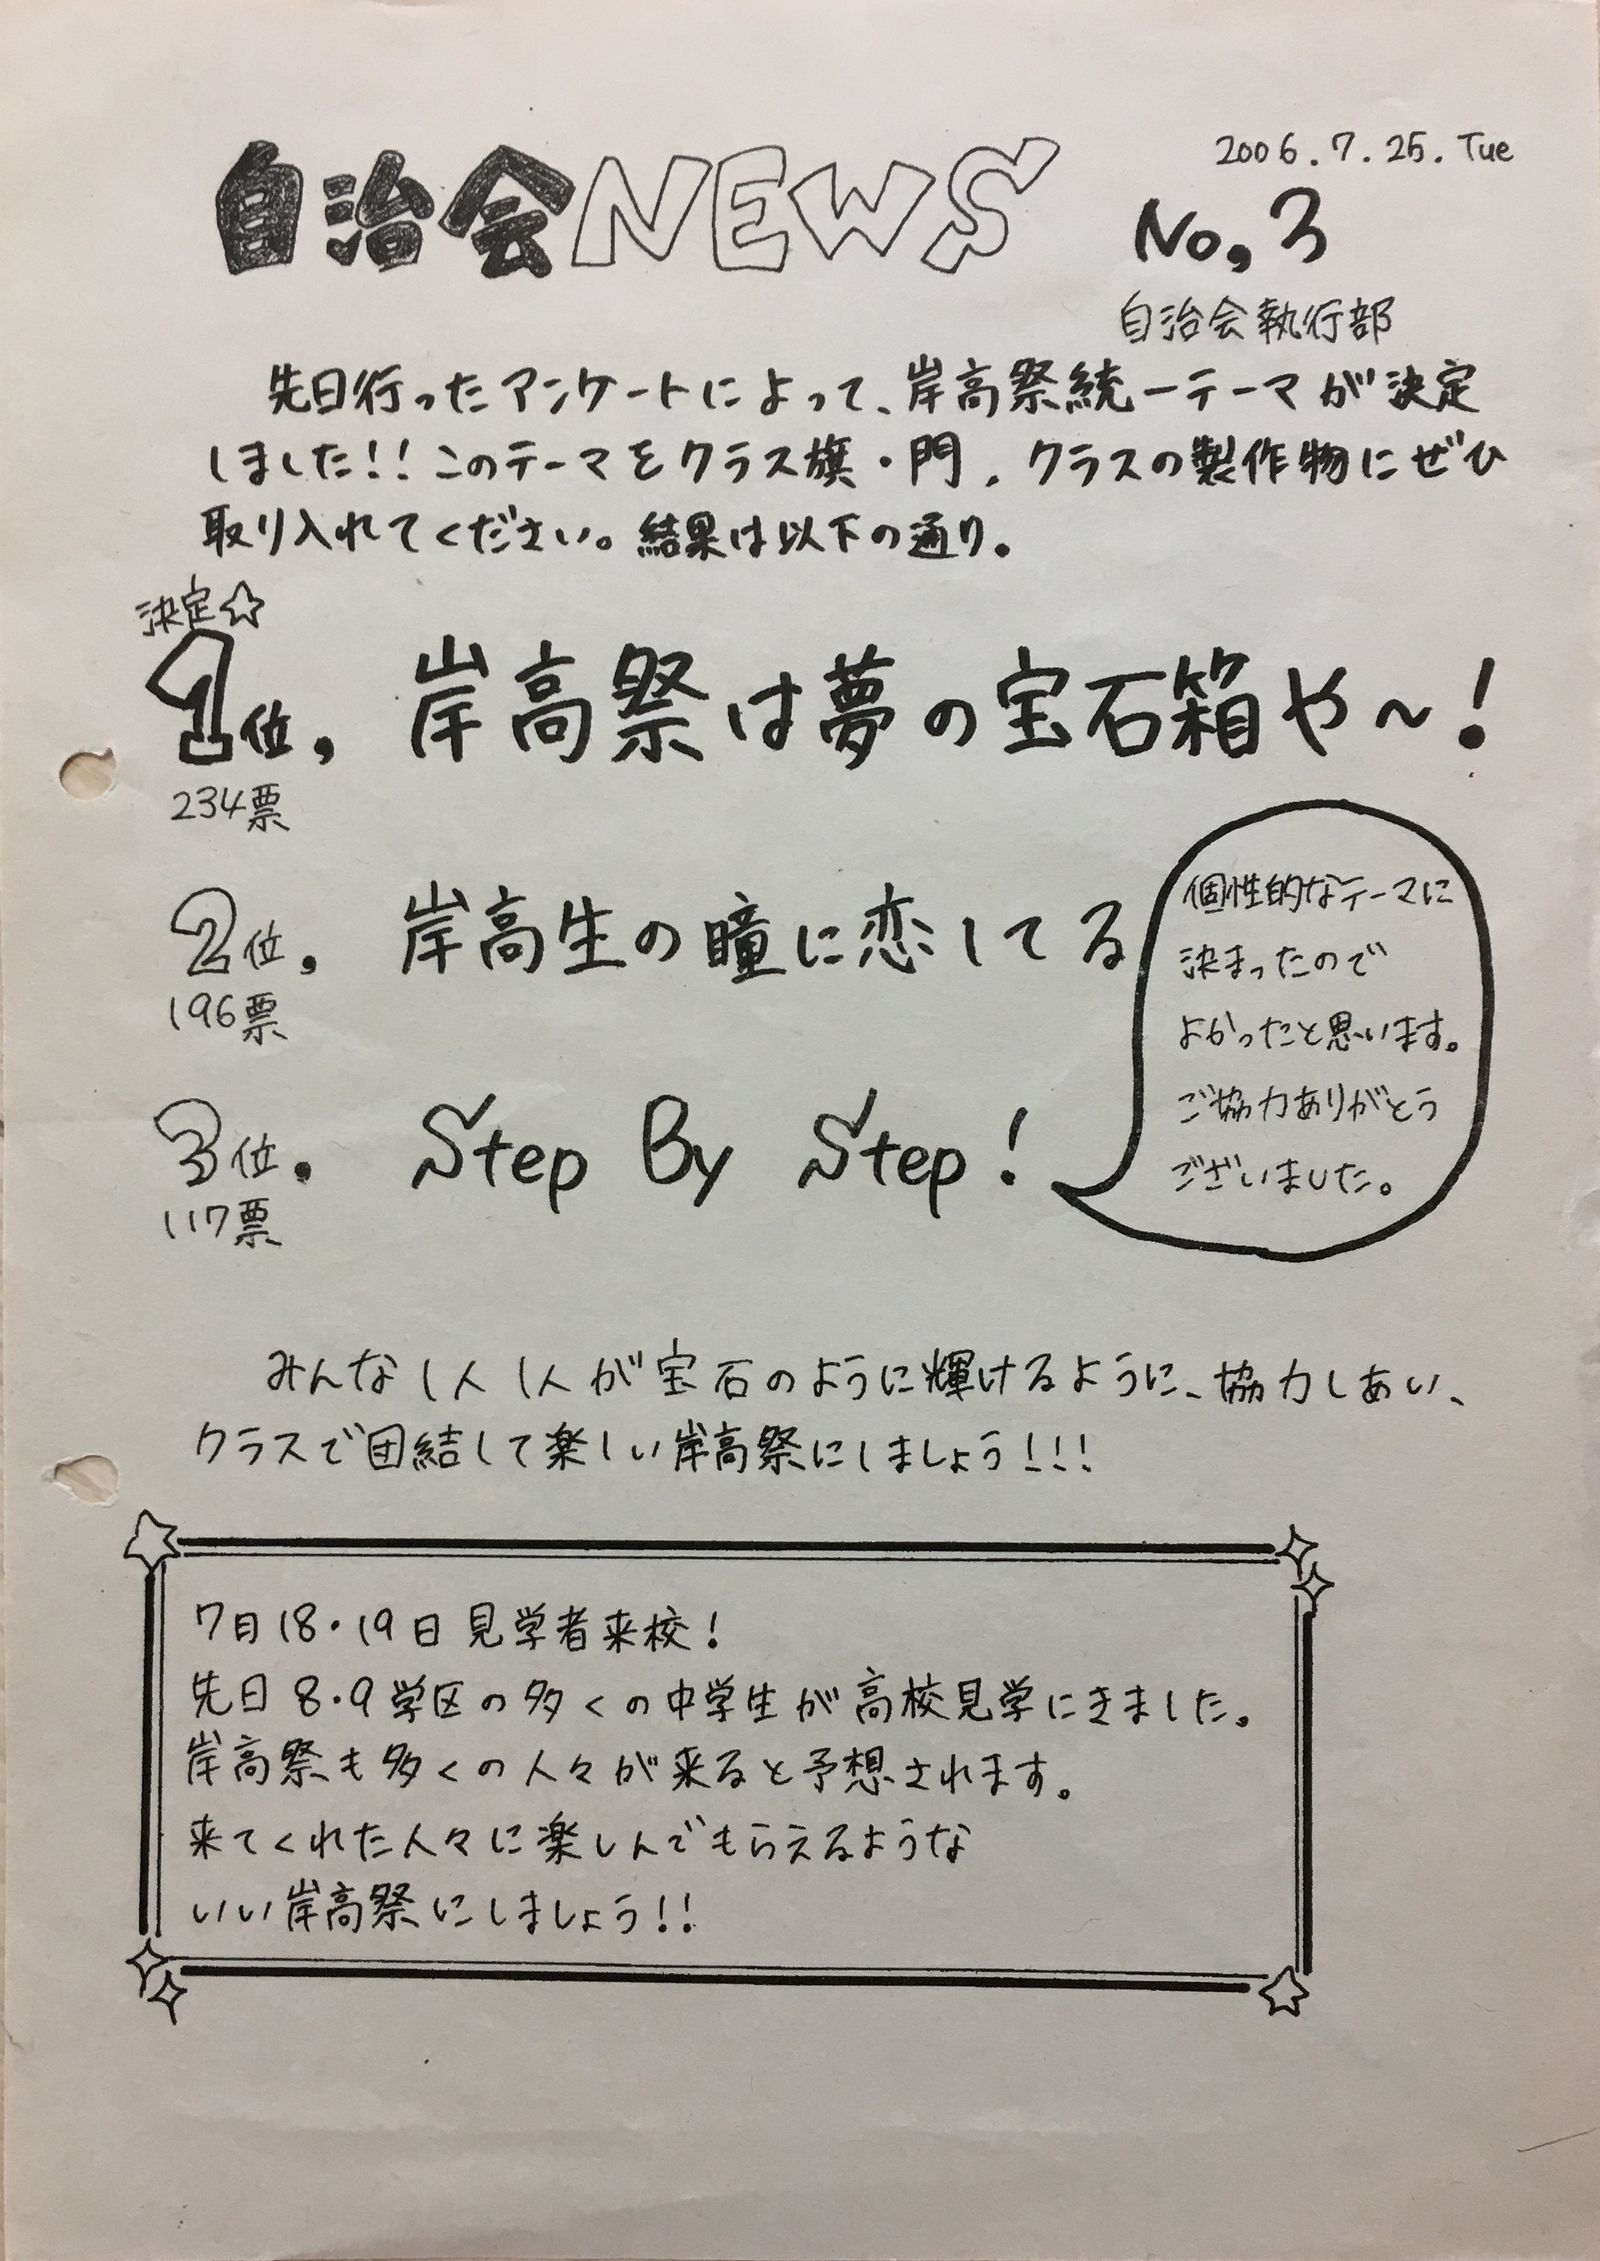 2006.7.25.Tue
自治会NEWS No,3
自治会執行部
先日行ったアンケートによって、岸高祭統一テーマが決定
しました!!このテーマをクラス旗・門、クラスの製作物にぜひ
取り入れてください。結果は以下の通り。
決定☆
1位, 岸高祭は夢の宝石箱や～!
234票
2位, 岸高生の瞳に恋してる
196票
3位. Step By Step!
117票
個性的なテーマに
決まったので
よかったと思います。
ご協力ありがとう
ございました。
みんな1人1人が宝石のように輝けるように、協力しあい、
クラスで団結して楽しい岸高祭にしましょう!!!
7月18・19日見学者来校!
先日8・9学区の多くの中学生が高校見学にきました。
岸高祭も多くの人々が来ると予想されます。
来てくれた人々に楽しんでもらえるような
いい岸高祭にしましょう!!